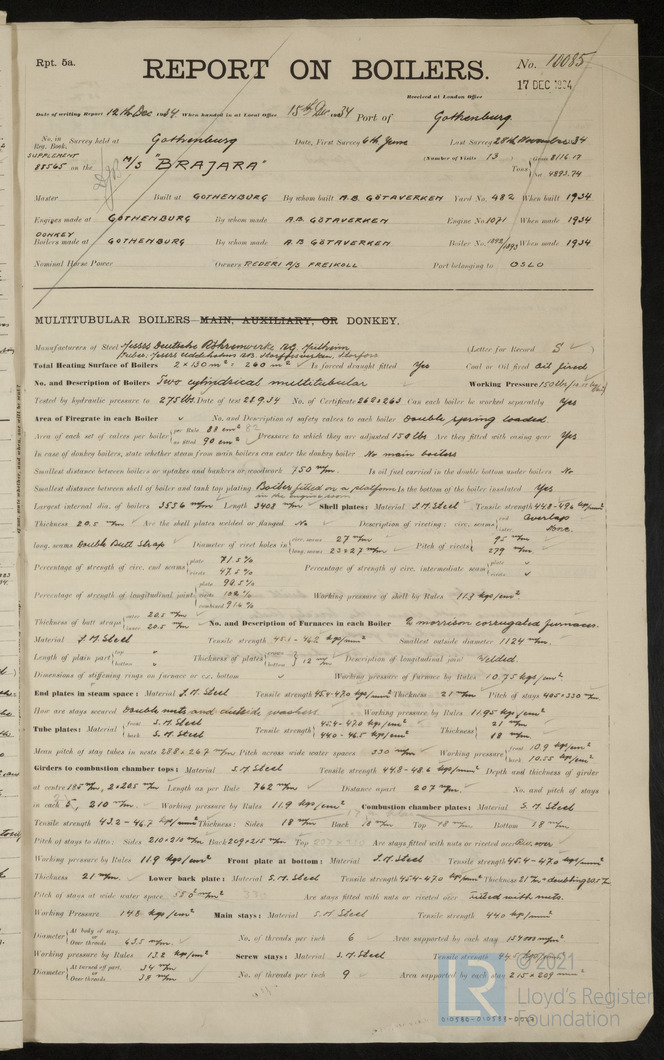 Rpt. 5a.
REPORT ON BOILERS.
No. 10085
17 DEC 1934
Received at London Office
Date of writing Report 12th Dec 1934. When handed in at Local Office 15th Dec 1934 Port of Gothenburg.
No. in Reg. Book. Survey held at Gothenburg Date, First Survey 6th June Last Survey 28th November 1934
SUPPLEMENT
88565 on the M/S "BRAJARA" (Number of Visits 13) Tons Gross 8116.17 Net 4893.74
Master Built at GOTHENBURG By whom built A.B. GÖTAVERKEN Yard No. 482 When built 1934
Engines made at GOTHENBURG By whom made A.B. GÖTAVERKEN Engine No. 1071 When made 1934
DONKEY
Boilers made at GOTHENBURG By whom made A.B GÖTAVERKEN Boiler No. 1892/1893 When made 1934
Nominal Horse Power Owners REDERI A/S FREIKOLL Port belonging to OSLO
MULTITUBULAR BOILERS MAIN, AUXILIARY, OR DONKEY.
Manufacturers of Steel Messrs Deutsche Röhrenwerke A.G. Mülheim (Letter for Record S)
Messrs Uddeholms AB. Storfors
Total Heating Surface of Boilers 2 × 130 m² = 260 m² Is forced draught fitted Yes Coal or Oil fired Oil fired
No. and Description of Boilers Two cylindrical multitubular Working Pressure 150 lbs
Tested by hydraulic pressure to 275 lbs. Date of test 22.9.34 No. of Certificate 262 & 263 Can each boiler be worked separately Yes
Area of Firegrate in each Boiler No. and Description of safety valves to each boiler Double spring loaded.
Area of each set of valves per boiler per Rule 88 cm² as fitted 90 cm² Pressure to which they are adjusted 150 lbs Are they fitted with easing gear Yes
In case of donkey boilers, state whether steam from main boilers can enter the donkey boiler No main boilers
Smallest distance between boilers or uptakes and bunkers or woodwork 750 m/m. Is oil fuel carried in the double bottom under boilers No
Smallest distance between shell of boiler and tank top plating Boiler fitted on a platform in the engine room Is the bottom of the boiler insulated Yes
Largest internal dia. of boilers 3556 m/m Length 3408 m/m Shell plates: Material S.M. Steel Tensile strength 44.8-49.6 kgs/mm²
Thickness 20.5 m/m Are the shell plates welded or flanged No Description of riveting: circ. seams end Overlap inter. None.
long. seams Double Butt Strap Diameter of rivet holes in circ. seams 27 m/m long. seams 23 & 27 m/m Pitch of rivets 95 m/m 279 m/m
Percentage of strength of circ. end seams plate 71.5% rivets 47.5% Percentage of strength of circ. intermediate seam plate rivets
Percentage of strength of longitudinal joint plate 90.5% rivets 102% combined 91.6% Working pressure of shell by Rules 11.3 kgs/cm²
Thickness of butt straps outer 20.5 m/m inner 20.5 m/m No. and Description of Furnaces in each Boiler 2 morrison corrugated furnaces.
Material S.M Steel Tensile strength 45.1-46.2 kgs/mm² Smallest outside diameter 1124 m/m.
Length of plain part top bottom Thickness of plates crown bottom 12 m/m Description of longitudinal joint Welded.
Dimensions of stiffening rings on furnace or c.c. bottom Working pressure of furnace by Rules 10.75 kgs/cm²
End plates in steam space: Material S.M Steel Tensile strength 45.4-47.0 kgs/mm² Thickness 21 m/m Pitch of stays 405 × 330 m/m
How are stays secured Double nuts and outside washers. Working pressure by Rules 11.95 kgs/cm²
Tube plates: Material front S.M Steel back S.M Steel Tensile strength 45.4-47.0 kgs/mm² 44.0-46.5 kgs/mm² Thickness 21 m/m 18 m/m
Mean pitch of stay tubes in nests 288 × 267 m/m Pitch across wide water spaces 330 m/m Working pressure front 10.9 kgs/cm² back 10.55 kgs/cm²
Girders to combustion chamber tops: Material S.M Steel Tensile strength 44.8-48.6 kgs/mm² Depth and thickness of girder
at centre 185 m/m, 2 × 20.5 m/m Length as per Rule 762 m/m Distance apart 207 m/m No. and pitch of stays
in each 5, 210 m/m. Working pressure by Rules 11.9 kgs/cm² Combustion chamber plates: Material S.M. Steel
Tensile strength 43.2-46.7 kgs/mm² Thickness: Sides 18 m/m Back 18 m/m Top 18 m/m Bottom 18 m/m
Pitch of stays to ditto: Sides 210 × 210 m/m Back 209 × 215 m/m Top Are stays fitted with nuts or riveted over Riv. over
Working pressure by Rules 11.9 kgs/cm² Front plate at bottom: Material S.M. Steel Tensile strength 45.4-47.0 kgs/mm²
Thickness 21 m/m. Lower back plate: Material S.M. Steel Tensile strength 45.4-47.0 kgs/mm² Thickness 21 m/m + doubling
Pitch of stays at wide water space 350 m/m² Are stays fitted with nuts or riveted over Fitted with nuts.
Working Pressure 14.8 kgs/cm² Main stays: Material S.M Steel Tensile strength 44.0 kgs/mm²
Diameter At body of stay, or Over threads 63.5 m/m. No. of threads per inch 6 Area supported by each stay
Working pressure by Rules 13.2 kgs/cm² Screw stays: Material S.M Steel Tensile strength
Diameter At turned off part, or Over threads 34 m/m 38 m/m No. of threads per inch 9 Area supported by each stay 215 × 209 m/m²
© 2021
LR
Lloyd's Register
Foundation